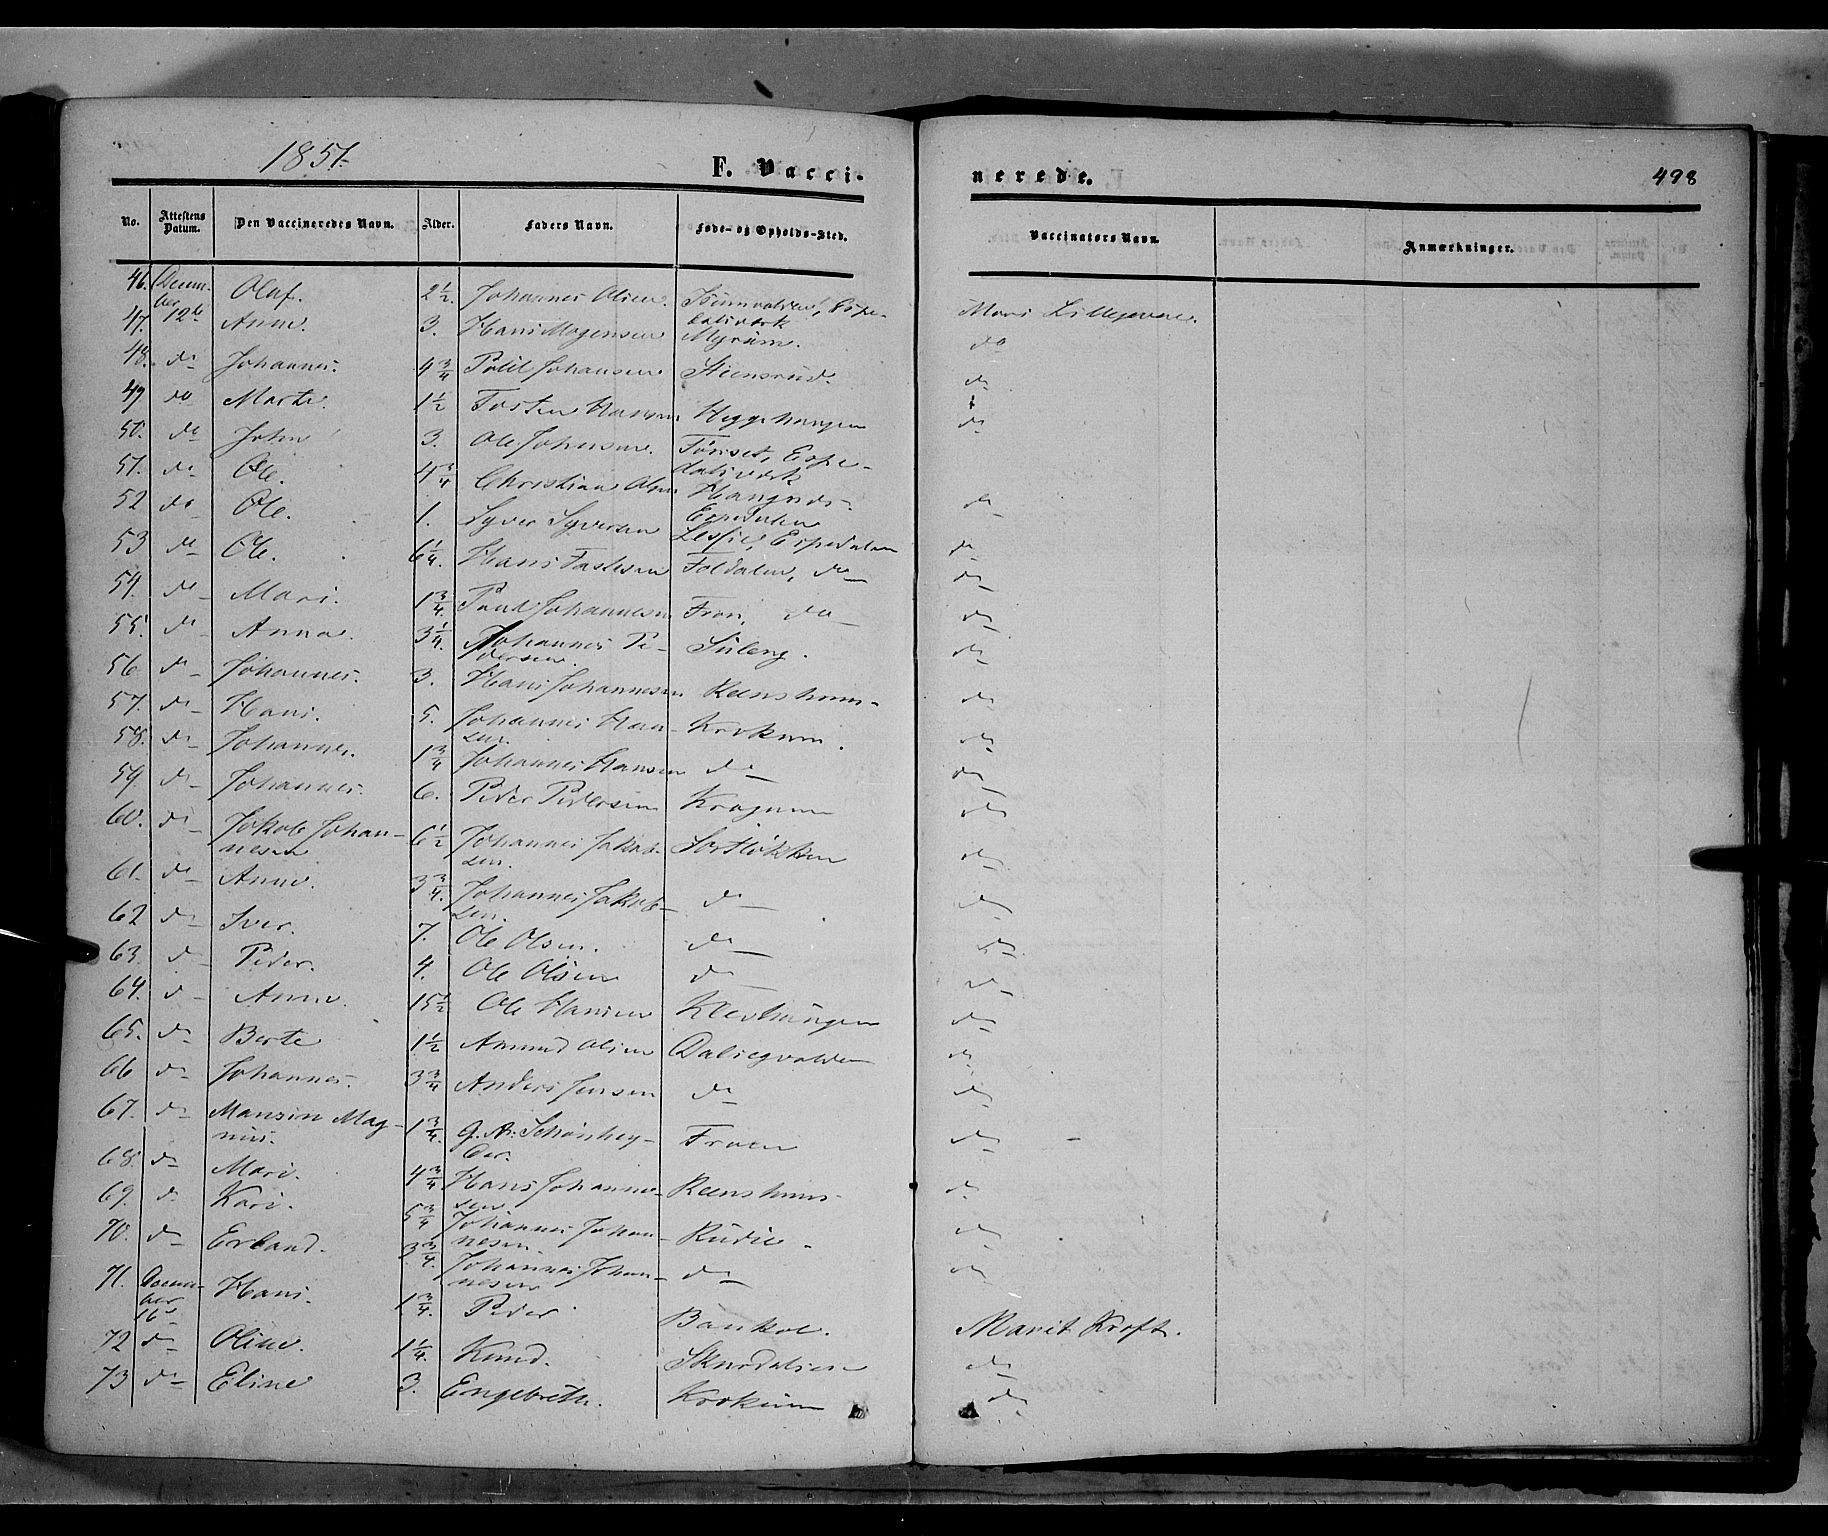 1851.
F. Vacci-
nerede.
498
No. Attestens Datum. Den Vaccineredes Navn. Alder. Faders Navn. Føde- og Opholds-Sted. Vaccinators Navn. Anmærkninger.
46. Decem-ber 12te Olaf. 2 1/2. Johannes Olsen. Espe-dalsværk
47. Anne 3. Hans Mogensen Myrum. do
48. do Johannes. 4 3/4 Poul Johansen Steensrud. do
49 do Marte. 1 1/2 Hansen Heggehaugen do
50. do John 3. Ole Johansen. Tøriset, Espe-dalsværk
51. do Ole. 4 3/4 Christian Olsen
52 do Ole. 1. Syver Syversen Espedalen do
53 do Ole. 6 1/4. Hans Fostesen Foldalen, do do
54. do Mari. 1 3/4. Poul Johannesen Fron, do do
55. do Anna. 3 1/4. Johannes Pe-dersen. Sûleng. do
56 do Johannes. 3. Hans Johannesen Reenshuus- do
57. do Hans. 5. Johannes Han-sen. Krokum. do
58. do Johannes. 1 3/4 Johannes Hansen do do
59. do Johannes. 6. Peder Pedersen Kragum do
60. do Jakob Johan-nesen 6 1/2 Johannes Jakob-sen. Sortløkken do
61. do Anne. 3 3/4. Johannes Jakob-sen. do do
62 do Iver. 7. Ole Olsen. do do
63. do Peder. 4. Ole Olsen do do
64. do Anne. 15 1/2 Ole Hansen Klevhaugen do
65. do Berte 1 1/2 Amund Olsen Dalsegvalden do
66 do Johannes. 3 3/4 Anders Jensen do do
67. do Mag-nus. 1 3/4. Schönhey-der. Froen do
68. do Mari. 4 3/4 Hans Johanne-sen Reenshuus- do
69. do Kari. 5 3/4 Johannes Johan-nesen. Rudie- do
70. do Erland. 3 3/4. Johannes Johan-nesen do do
71. Decem-ber 16de Hans. 1 3/4. Peder Bankol. Marit Kroft.
72 do Oline. 1 1/4. Knud. Skurdalsen do
73 do Eline 3. Engebreth. Krokum do